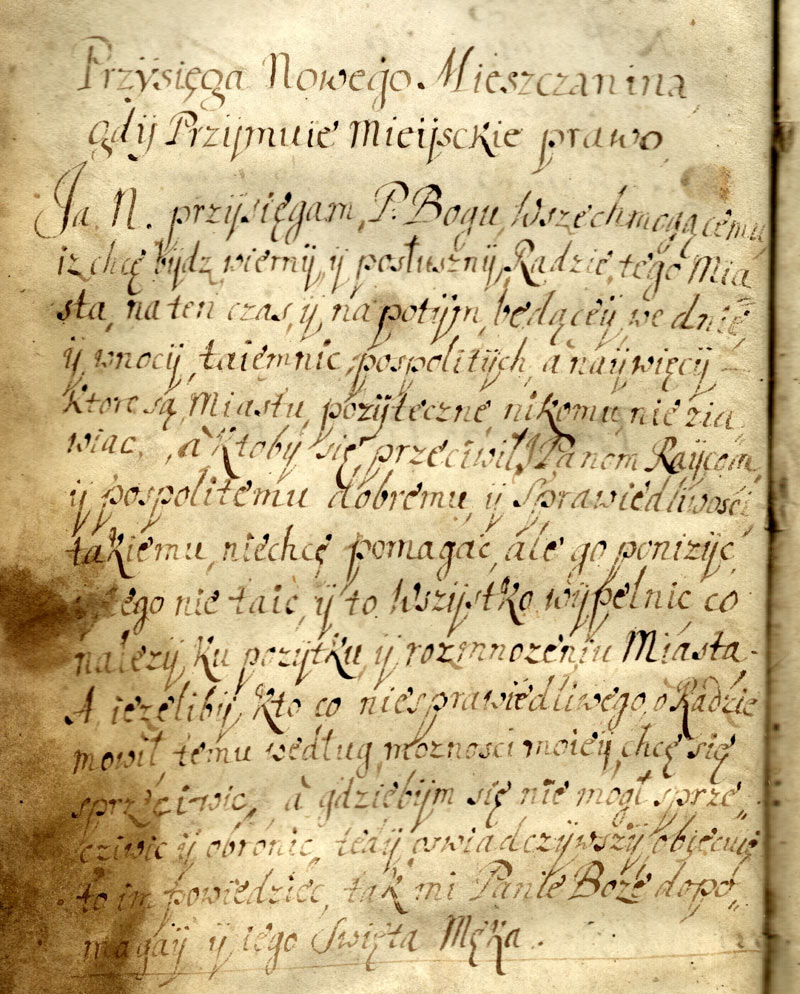 Przysięga Nowego Mieszczanina
gdÿ Przÿmuie Mieÿsckie prawo
Ja N. przÿsięgam, P. Bogu, Wszechmogącemu,
iz chcę bÿdz wiernÿ, ÿ posłusznÿ, Radzie, tego Mia
sta, na ten czas, ÿ, na potÿm, będąceÿ, we dnie,
ÿ, wnocÿ, taiemnic, pospolitÿch, a naÿwięcÿ
ktore są, Miastu, pozÿteczne, nikomu, nie zia
wiac, a Ktobÿ się, przeciwił, Panom Raÿcom,
ÿ pospolitemu dobremu, ÿ Sprawiedliwosci,
takiemu, niechcę pomagac, ale go ponizÿc,
tego nie taic, ÿ to Wszÿstko, wÿpełnic, co
nalezÿ, ku pozÿtku, ÿ rozmnozeniu Miasta.
A iezelibÿ, kto co niesprawiedliwego, o Radzie
mowił temu według, moznosci moieÿ, chcę się
sprzeciwic, a gdziebÿm się nie mogł sprze„
cziwic ÿ obronic, tedÿ, oswiadczÿwszÿ obiecuię
to im powiedziec, tak mi Panie Boze dopo„
magaÿ ÿ iego Swięta Męka.